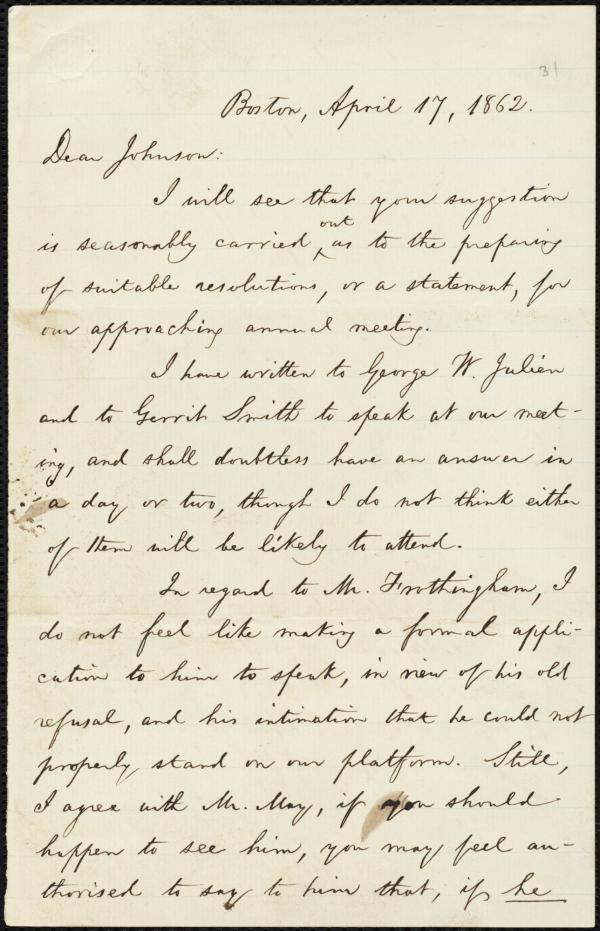 31
Boston, April 17, 1862.
Dear Johnson:
I will see that your suggestion
out
is seasonably carried ‸ as to the preparing
of suitable resolutions, or a statement, for
our approaching annual meeting.
I have written to George W. Julien
and to Gerrit Smith to speak at our meet-
ing, and shall doubtless have an answer in
a day or two, though I do not think either
of them will be likely to attend.
In regard to Mr. Frothingham, I
do not feel like making a formal appli-
cation to him to speak, in view of his old
refusal, and his intimation that he could not
properly stand on our platform. Still,
I agree with Mr. May, if you should
happen to see him, you may feel au-
thorised to say to him that, if he